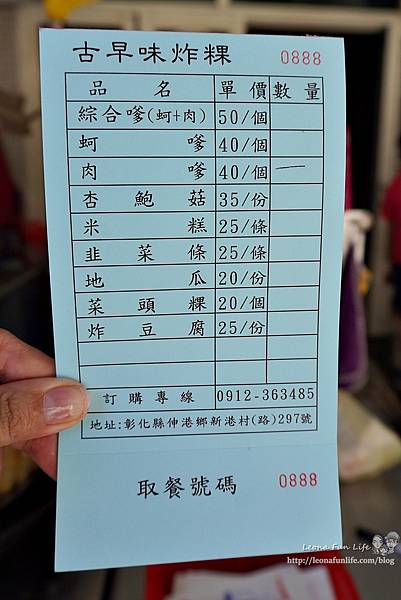 古早味炸粿 0888
品名 單價 數量
綜合嗲(蚵+肉) 50/個
蚵嗲 40/個
肉嗲 40/個 一
杏鮑菇 35/份
米糕 25/條
韭菜條 25/條
地瓜 20/份
菜頭粿 20/個
炸豆腐 25/份
訂購專線 0912-363485
地址:彰化縣伸港鄉新港村(路)297號
取餐號碼 0888
Leona Fun Life
http://leonafunlife.com/blog